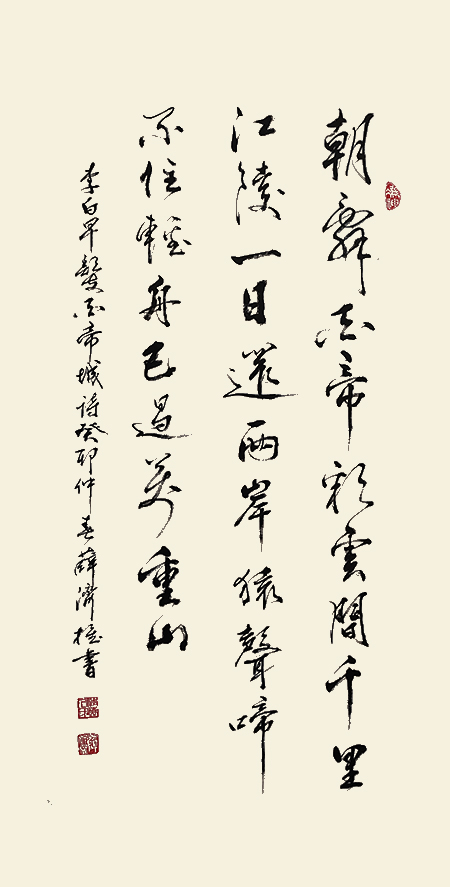 朝辭白帝彩雲間千里
江陵一日還兩岸猿聲啼
不住輕舟已過萬重山
李白早發白帝城詩癸卯仲春薛濟書